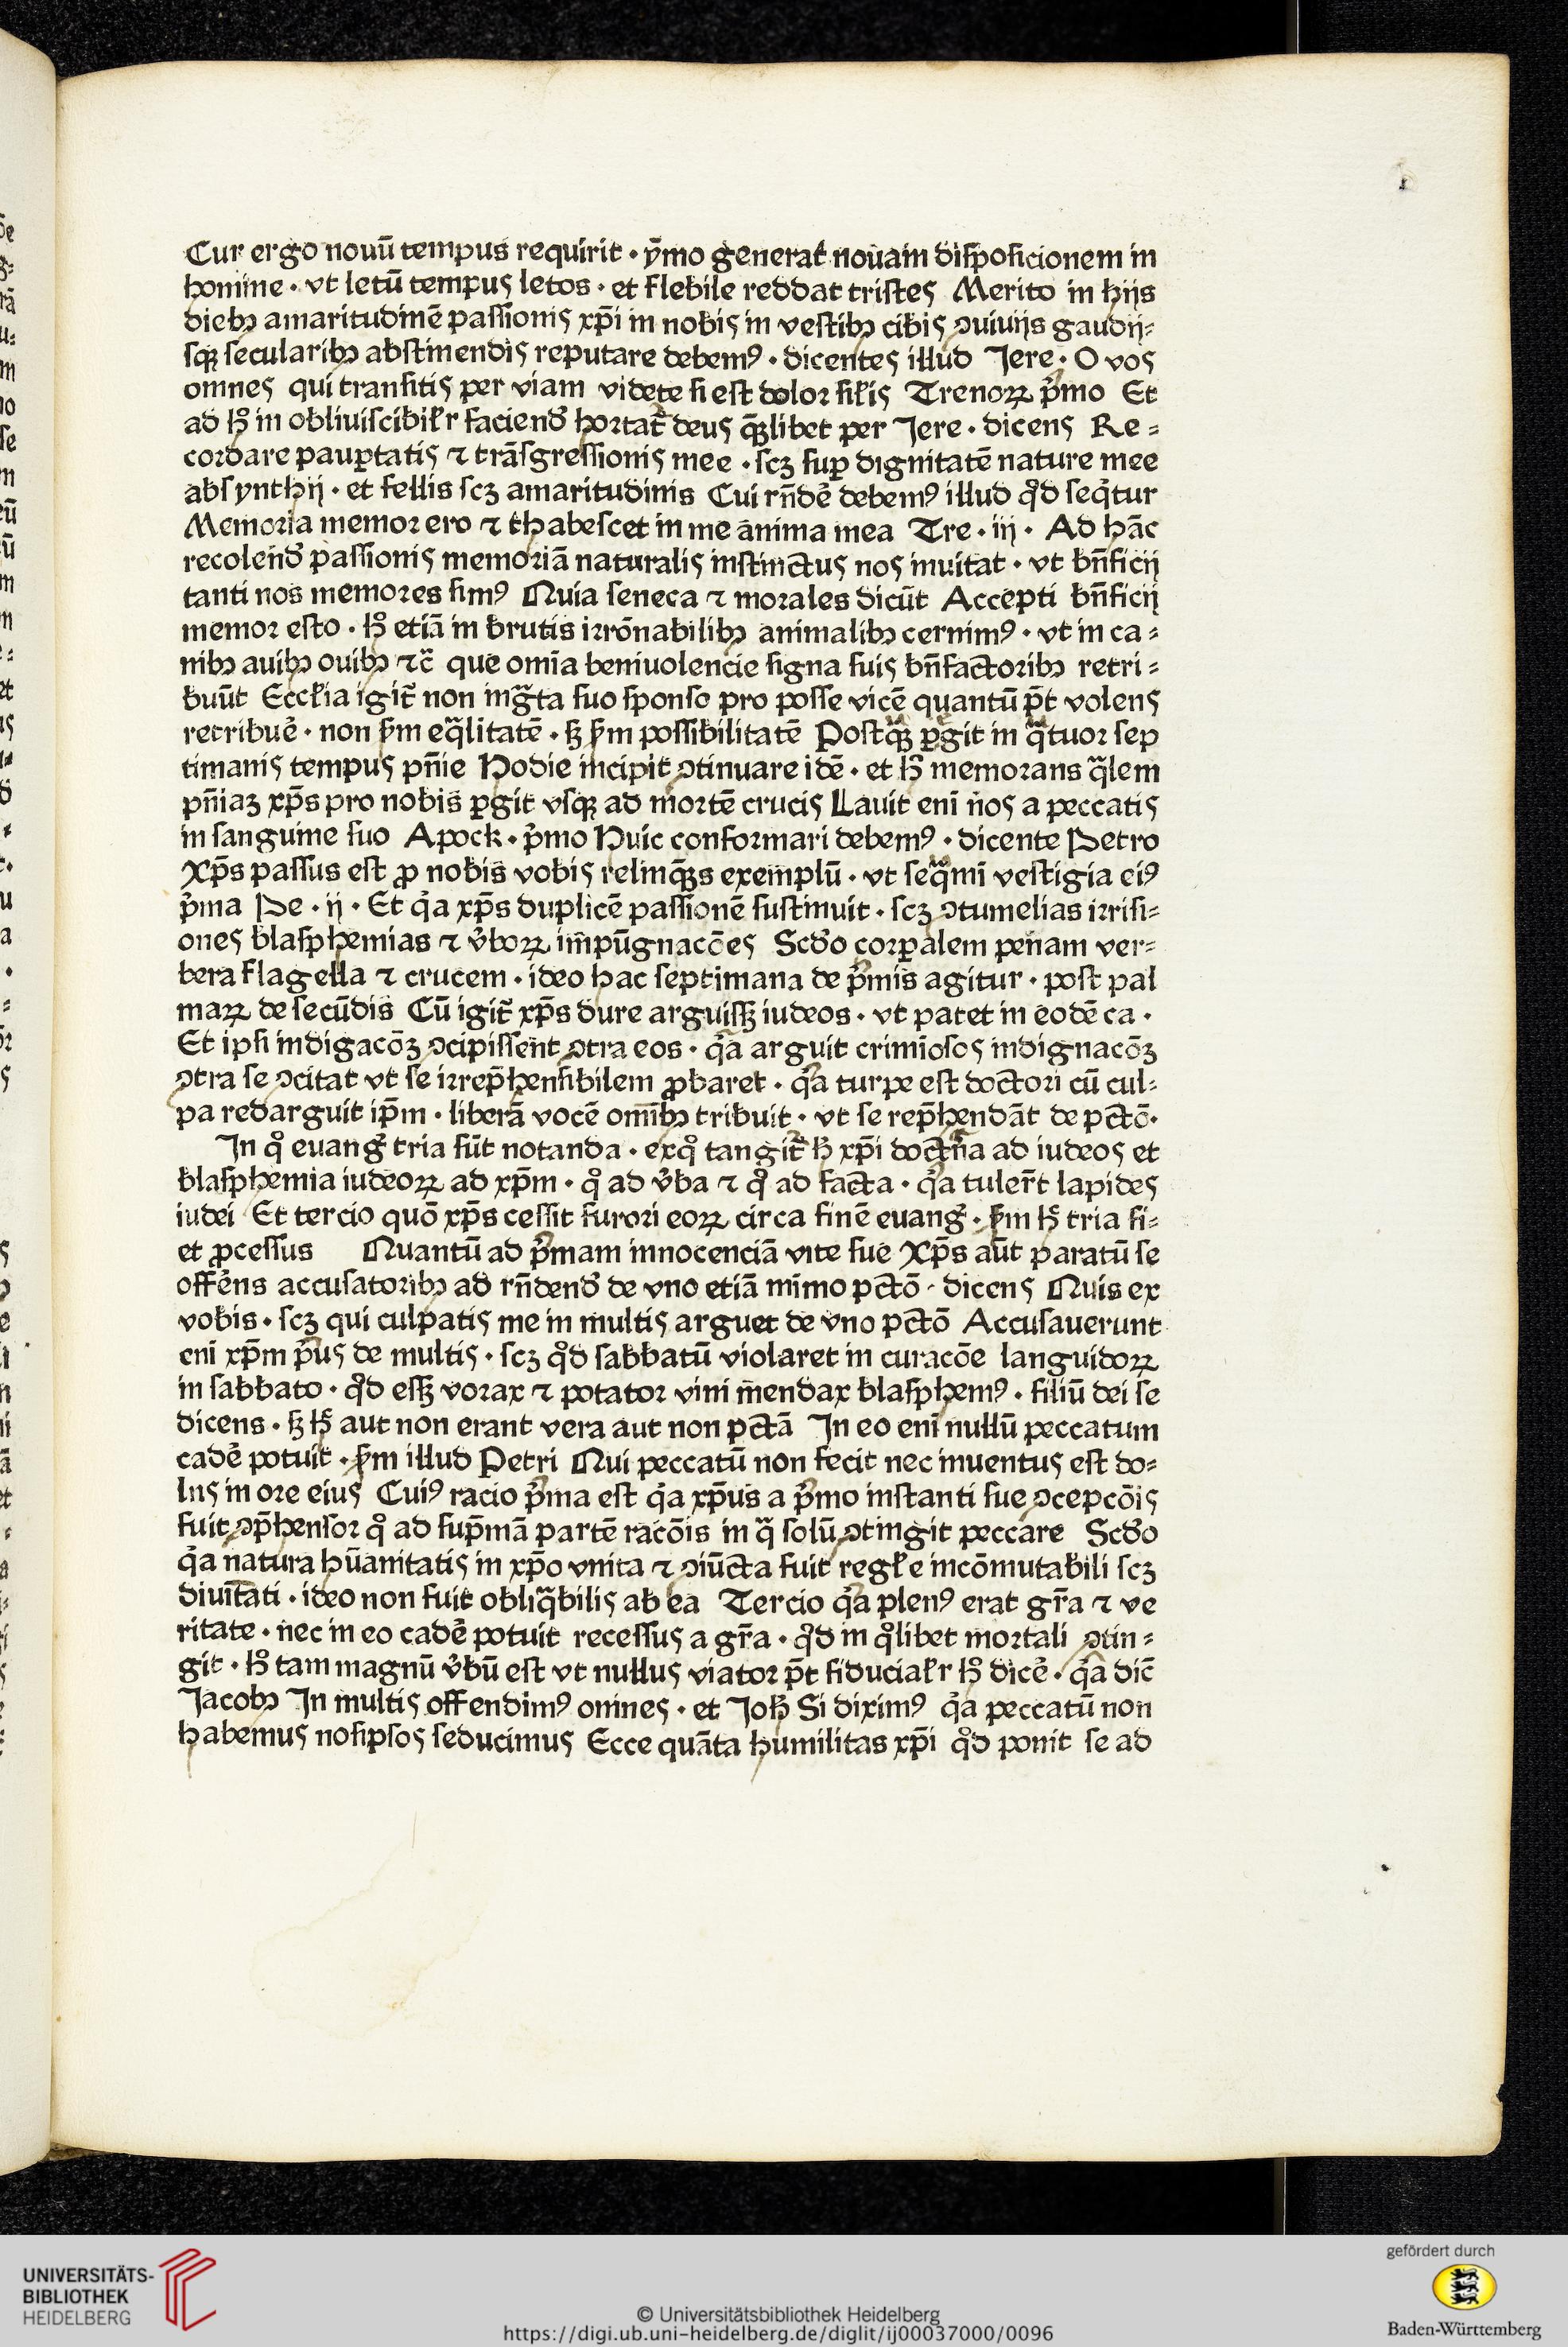 Cur ergo nouū tempus requirit · ẏmo generat nouam diſpoſicionem in
homine · vt letū tempus letos · et flebile reddat triſtes Merito in hijs
diebꝫ amaritudinē paſſionis xp̄i in nobis in veſtibꝫ cibis ꝯuiuijs gaudij⸗
ſqꝫ ſecularibꝫ abſtinendis reputare debemꝰ · dicentes illud Jere · O vos
omnes qui tranſitis per viam videte ſi eſt dolor ſil̄is Trenoꝝ p̊mo Et
ad hͦ in obliuiſcibil̄r faciend̄ hortat᷑ deus quēlibet per Jere · dicens Re⸗
cordare paup̱tatis ⁊ trāſgreſſionis mee · ſcꝫ ſup̱ dignitatē nature mee
abſynthij · et fellis ſcꝫ amaritudinis Cui rn̄dē debemꝰ illud qͦd ſeqͥtur
Memoria memor ero ⁊ thabeſcet in me anima mea Tre · iij · Ad hāc
recolend̄ paſſionis memoriā naturalis inſtinctus nos inuitat · vt bn̄ficij
tanti nos memores ſimꝰ Quia ſeneca ⁊ morales dicūt Accepti bn̄ficij
memor eſto · hͦ etiā in brutis irrōnabilibꝫ animalibꝫ cernimꝰ · vt in ca⸗
nibꝫ auibꝫ ouibꝫ ⁊c̄ que omīa beniuolencie ſigna ſuis bn̄factoribꝫ retri⸗
buūt Eccl̄ia igit᷑ non ingᷓta ſuo ſponſo pro poſſe vicē quantū pt̄ volens
retribuē · non ſm̄ eqᷓlitatē · ſꝫ ſm̄ poſſibilitatē Poſtqᷓꝫ ꝑgit in qᷓtuor ſep
timanis tempus pn̄ie Hodie incipit ꝯtinuare idē · et hͦ memorans qᷓlem
pn̄iaꝫ xp̄s pro nobis ꝑgit vſqꝫ ad mortē crucis Lauit enī nos a peccatis
in ſanguine ſuo Apock · p̊mo Huic conformari debemꝰ · dicente Petro
Xp̄s paſſus eſt ꝓ nobis vobis relinqͣꝫs exemplū · vt ſeqͣmī veſtigia eiꝰ
p̊ma Pe · ij · Et qͥa xp̄s duplicē paſſionē ſuſtinuit · ſcꝫ ꝯtumelias irriſi⸗
ones blaſphemias ⁊ v̄boꝝ im̄pūgnacōes Scd̄o corꝑalem penam ver⸗
bera flagella ⁊ crucem · ideo hac ſeptimana de p̊mis agitur · poſt pal
maꝝ de ſecūdis Cū igit᷑ xp̄s dure arguiſſꝫ iudeos · vt patet in eodē ca ·
Et ipſi indigacōꝫ ꝯcipiſſent ꝯtra eos · qͥa arguit crimīoſos indignacōꝫ
ꝯtra ſe ꝯcitat vt ſe irrep̄henſibilem ꝓbaret · qͥa turpe eſt doctori cū cul⸗
pa redarguit ip̄m · liberā vocē omībꝫ tribuit · vt ſe rep̄hendāt de pctō·
In qͦ euangͤ tria ſūt notanda · exqͦ tangit᷑ hͦ xp̄i doctn̄a ad iudeos et
blaſphemia iudeoꝝ ad xp̄m · qͦ ad v̄ba ⁊ qͦ ad facta · qͥa tuler̄t lapides
iudei Et tercio quō xp̄s ceſſit furori eoꝝ circa finē euangͤ · ſm̄ hͦ tria fi⸗
et ꝓceſſus Quantū ad p̊mam innocenciā vite ſue Xp̄s aūt paratū ſe
offēns accuſatoribꝫ ad rn̄dend̄ de vno etiā mīmo pctō · dicens Quis ex
vobis · ſcꝫ qui culpatis me in multis arguet de vno pctō Accuſauerunt
enī xp̄m p̊us de multis · ſcꝫ qͦd ſabbatū violaret in curacōe languidoꝝ
in ſabbato · qͦd eſſꝫ vorax ⁊ potator vini mendax blaſphemꝰ · filiū dei ſe
dicens · ſꝫ hͨ aut non erant vera aut non pctā In eo enī nullū peccatum
cadē potuit · ſm̄ illud Petri Qui peccatū non fecit nec inuentus eſt do⸗
lus in ore eius Cuiꝰ racio p̊ma eſt qͥa xp̄us a p̊mo inſtanti ſue ꝯcepcōis
fuit ꝯp̄henſor qͦ ad ſup̄mā partē racōis in qᷓ ſolū ꝯtingit peccare Scd̄o
qͥa natura hūanitatis in xp̄o vnita ⁊ ꝯiūcta fuit regl̄e incōmutabili ſcꝫ
diuītati · ideo non fuit obliqᷓbilis ab ea Tercio qͥa plenꝰ erat gr̄a ⁊ ve
ritate · nec in eo cadē potuit receſſus a gr̄a · qͦd in qͦlibet mortali ꝯtin⸗
git · hͦ tam magnū v̄bū eſt vt nullus viator pt̄ fiducial̄r hͦ dicē · qͥa dic̄
Jacobꝫ In multis offendimꝰ omnes · et Joh̄ Si diximꝰ qͥa peccatū non
habemus noſipſos ſeducimus Ecce quāta humilitas xp̄i qͦd ponit ſe ad
UNIVERSITÄTS-
BIBLIOTHEK
HEIDELBERG
© Universitätsbibliothek Heidelberg
https://digi.ub.uni-heidelberg.de/diglit/ij00037000/0096
gefördert durch
Baden-Württemberg